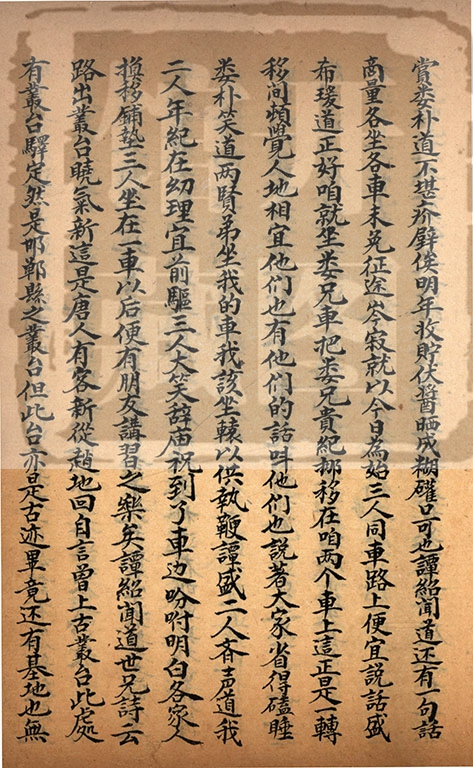 賞娄朴道不堪疥壁俟明年收貯伏醬晒成糊礶口可也譚紹聞道还有一句話
商量各坐各車未免征途岑寂就以今日為始三人同車路上便宜説話盛
希瑗道正好咱就坐娄兄車把娄兄貴紀挪移在咱两个車上這正是一轉
移间頓覺人地相宜他們也有他們的話叫他們也説著大家省得磕睡
娄朴笑道两賢弟坐我的車我該坐轅以供執鞭譚盛二人斉声道我
二人年紀在幼理宜前驅三人大笑辞庙祝到了車边吩咐明白各家人
換移鋪墊三人坐在一車以后便有朋友講習之樂矣譚紹聞道世兄詩云
路出叢台曉氣新這是唐人有客新從趙地回自言曽上古叢台此處
有叢台驛定然是邯鄲縣之叢台但此台亦是古迹畢竟还有基地也無